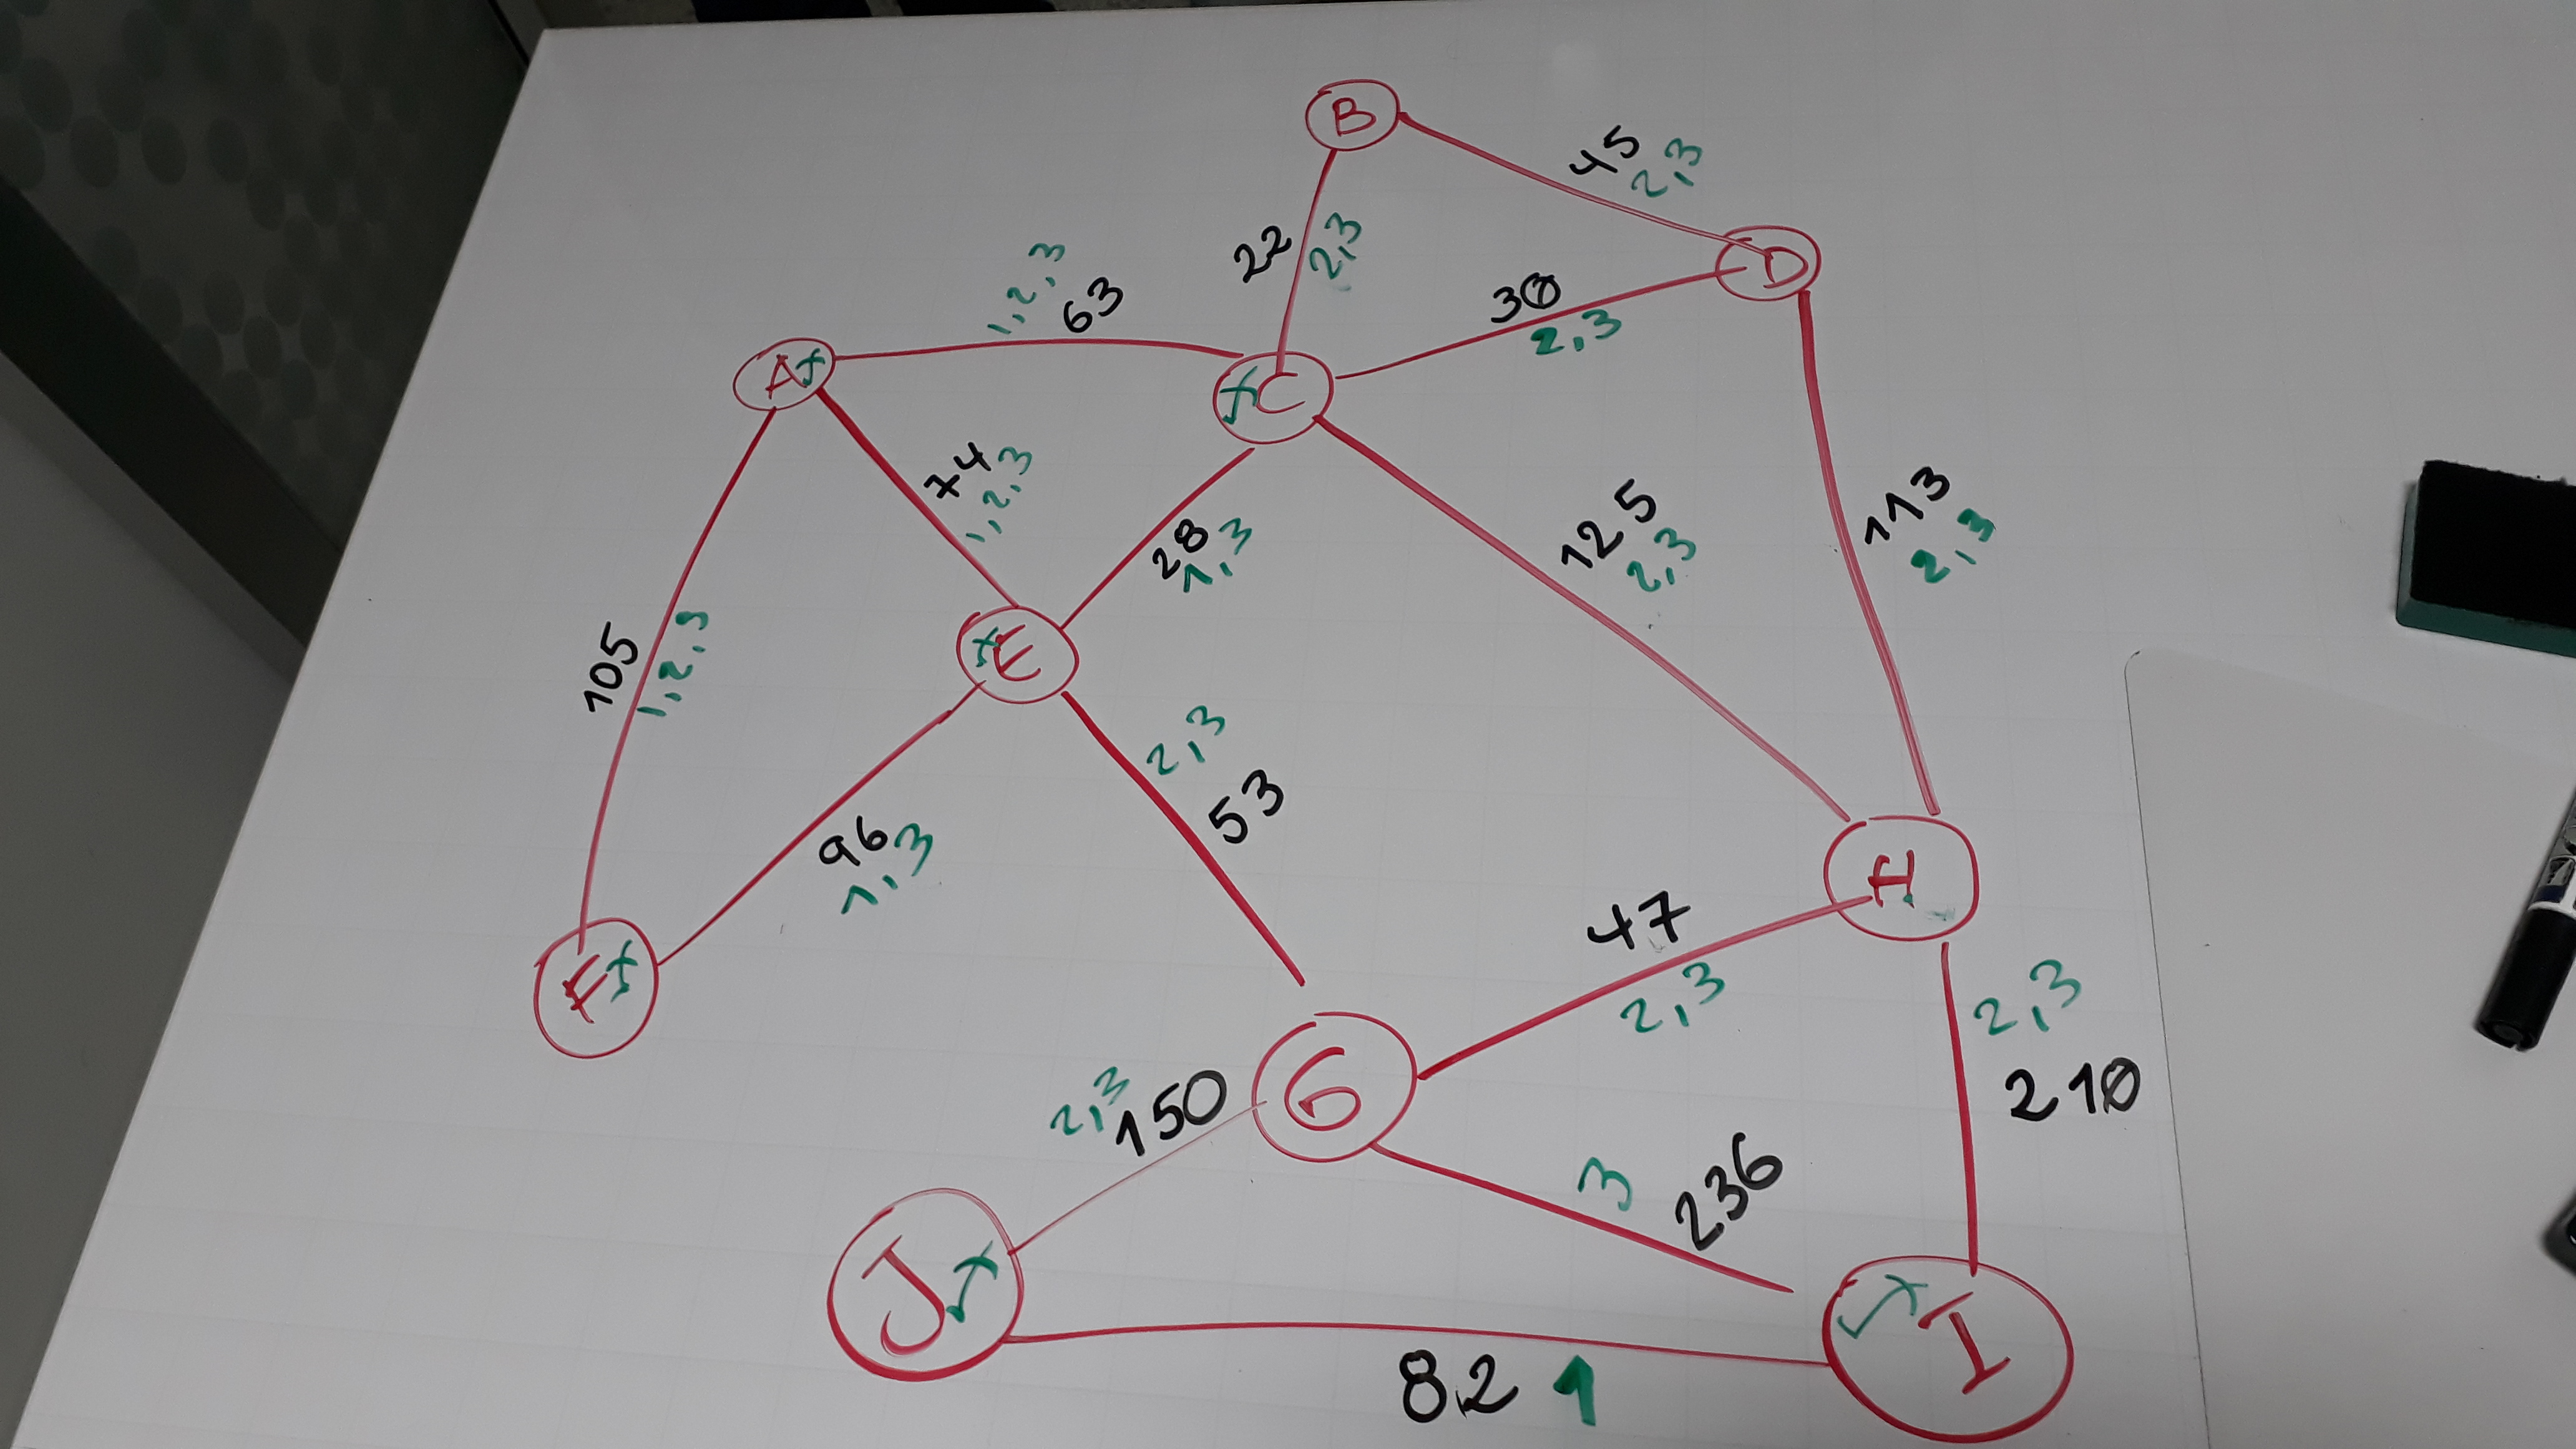 B
45
2,3
22
2,3
D
1,2,3
63
30
2,3
A
C
74
1,2,3
28
1,3
125
2,3
113
2,3
105
1,2,3
E
2,3
53
96
1,3
H
47
2,3
F
2,3
210
2,3
150
G
3
236
J
I
82 1